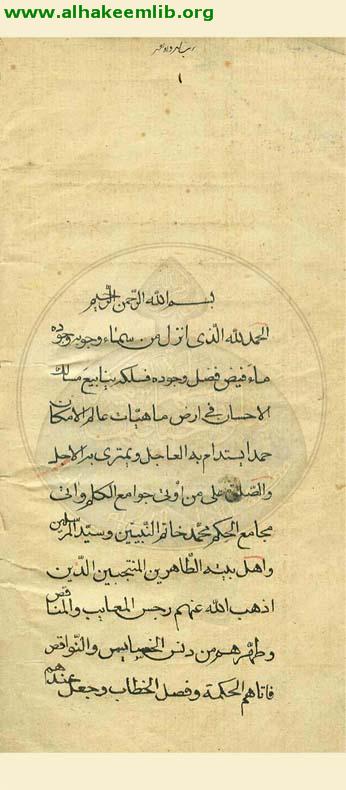 www.alhakeemlib.org
١
بسم الله الرحمن الرحيم
الحمد لله الذى انزل من سماء وجوب وجوده
ماء فيض فضل وجوده فسلكه ينابيع مسالك
الاحسان فى ارض ماهيات عالم الامكان
حمدا يستدام به العاجل ويمترى به الاجل
والصلوة على من اوتى جوامع الكلم واتى
مجامع الحكم محمد خاتم النبيين وسيد المرسلين
واهل بيته الطاهرين المنتجبين الذين
اذهب الله عنهم رجس المعايب والمناقص
وطهرهم من دنس الخسايس والنواقص
فاتاهم الحكمة وفصل الخطاب وجعل عندهم